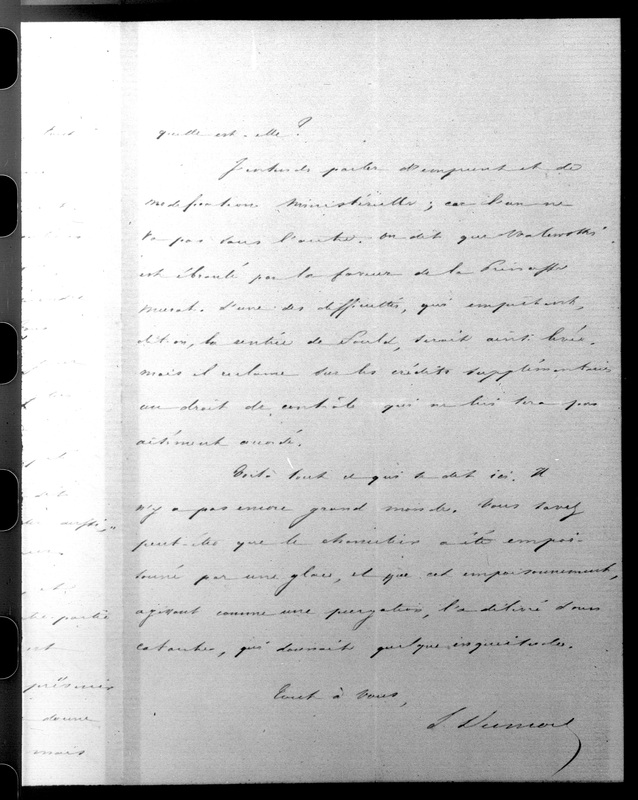 quelle est-elle ?
J'entends parler d'emprunt et de
modifications ministérielles ; car l'un ne
va pas sans l'autre. on dit que Walewski
est ébranlé par la faveur de la Princesse
Murat. d'une des difficultés, qui empêchent,
dit-on, la rentrée de Fould, serait ainsi levée.
mais il réclame sur les crédits supplémentaires
un droit de contrôle qui ne lui sera pas
aisément accordé.
Voilà tout ce qui se dit ici. Il
n'y a pas encore grand monde. Vous savez
peut-être que le chancelier a été empoi-
sonné par une glace, et que cet empoisonnement,
agissant comme une purgation, l'a délivré d'un
catarrhe, qui donnait quelque inquiétude.
Tout à vous,
S. Dumon
partie
donne
mais